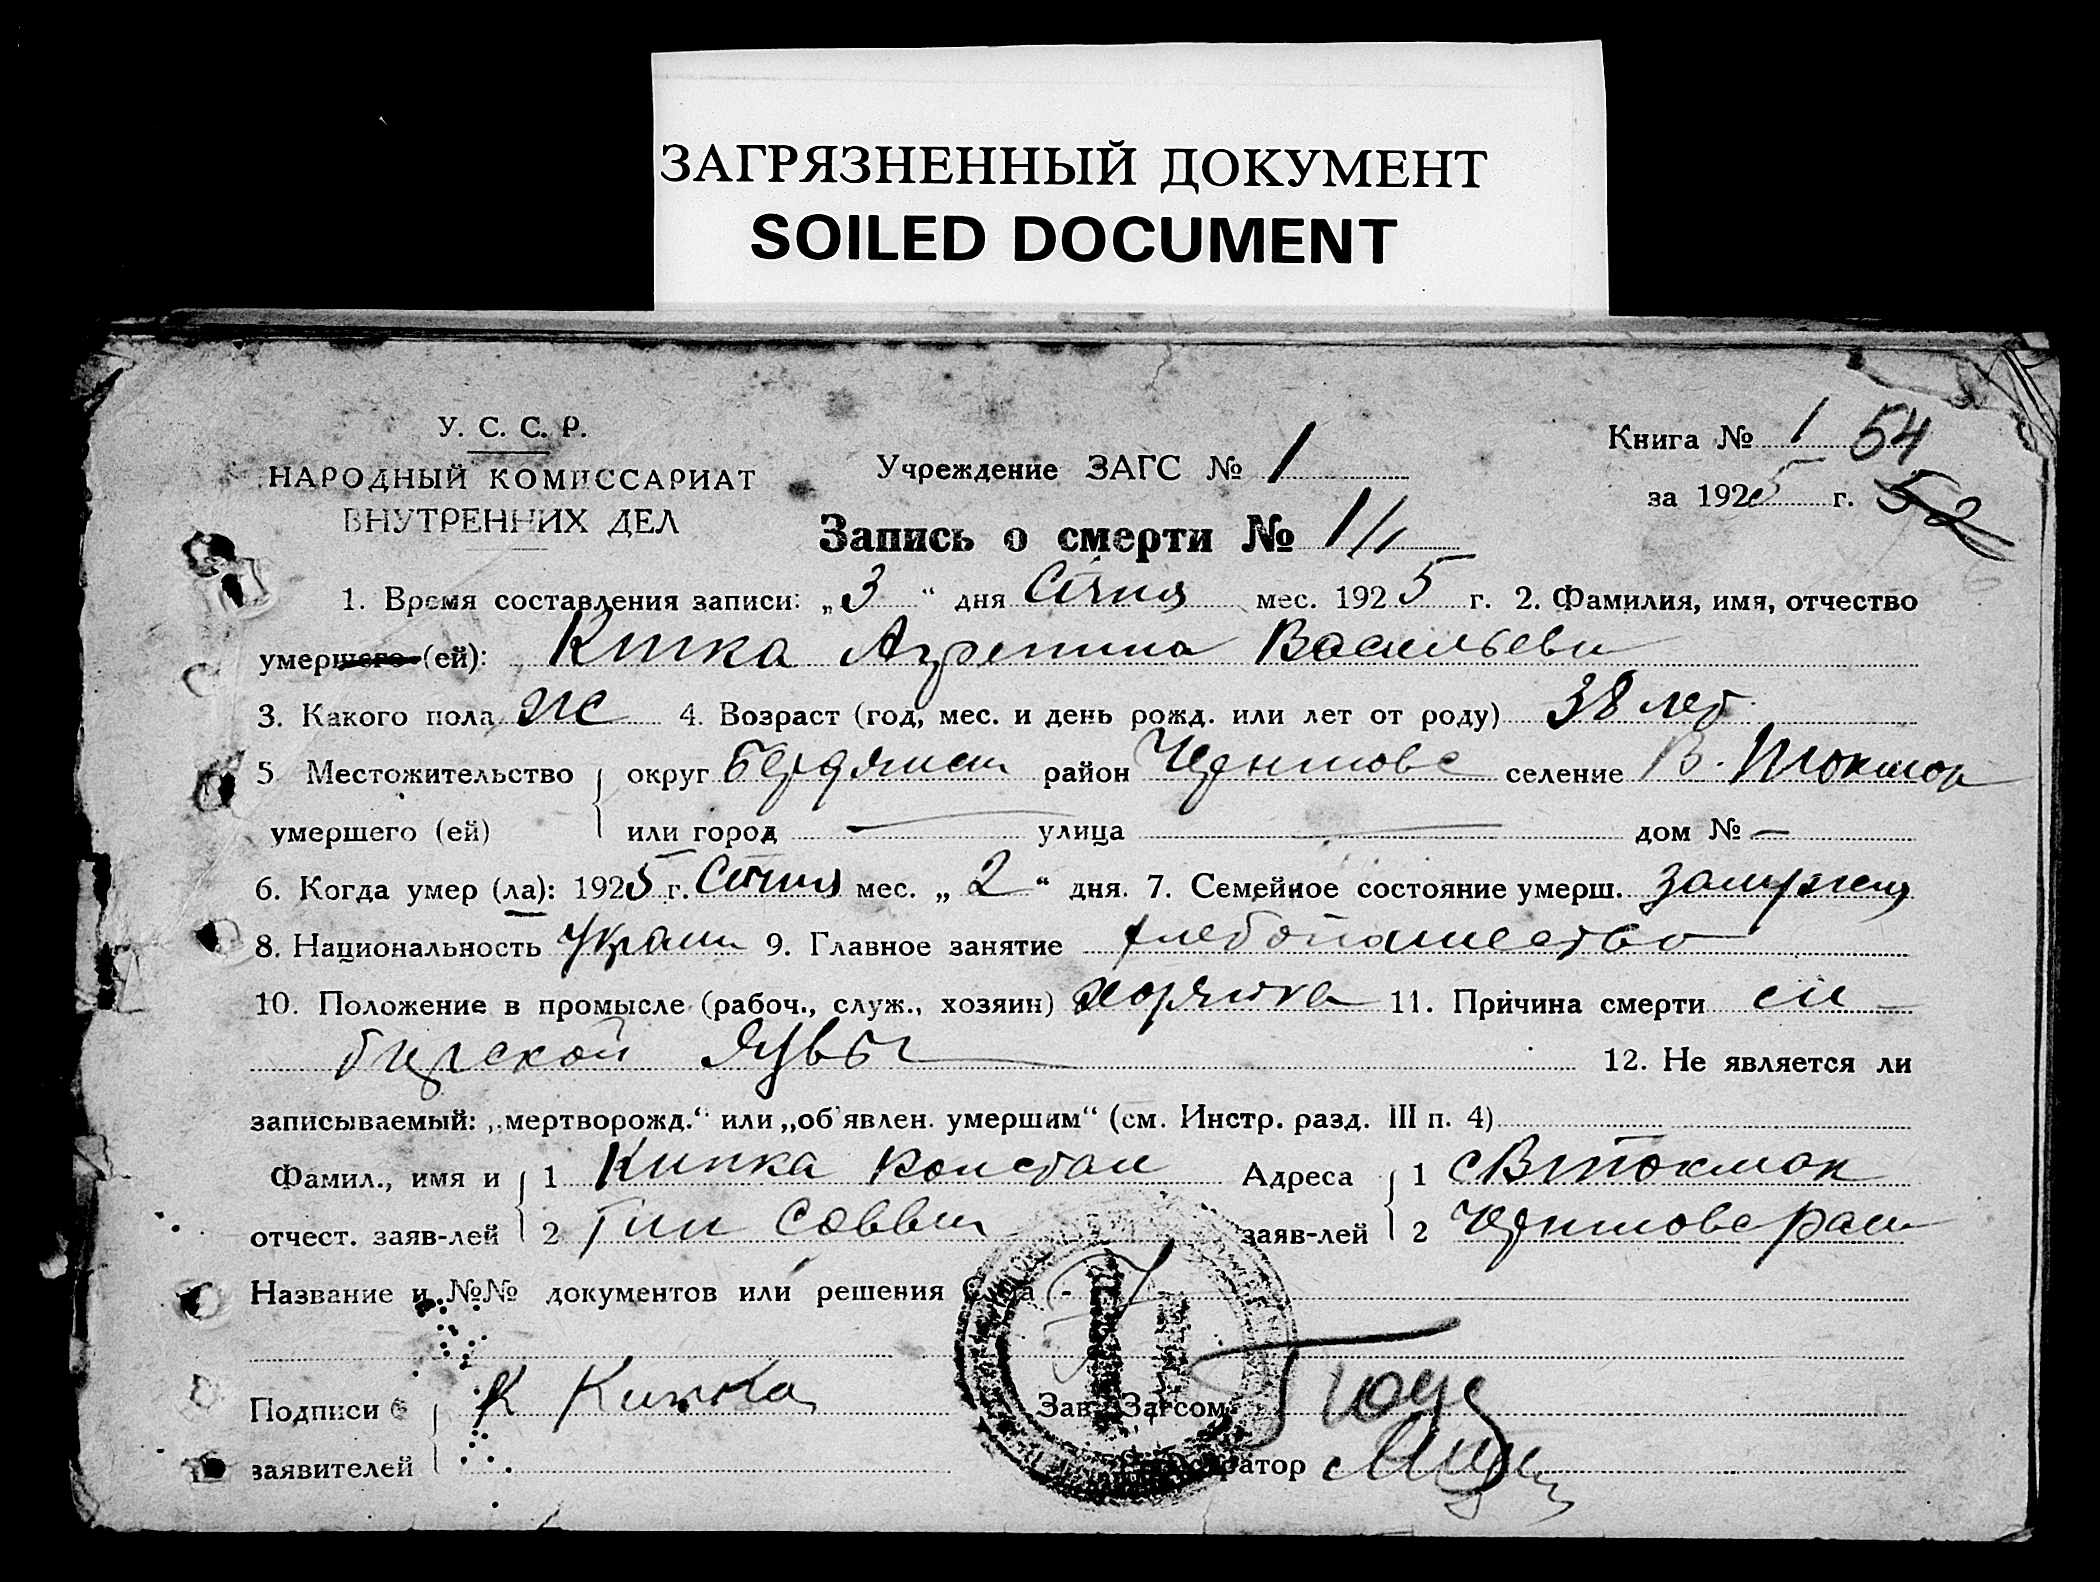 ЗАГРЯЗНЕННЫЙ ДОКУМЕНТ
SOILED DOCUMENT
У. С. С. Р.
НАРОДНЫЙ КОМИССАРИАТ
ВНУТРЕННИХ ДЕЛ
Учреждение ЗАГС № 1
Книга № 1 54
за 1925 г. 52
Запись о смерти № 1/1
1. Время составления записи: „3“ дня Січня мес. 1925 г. 2. Фамилия, имя, отчество
умершего (ей): Кипка Агрепина Васильевн
3. Какого пола ж 4. Возраст (год, мес. и день рожд. или лет от роду) 38 лет
5 Местожительство округ Бердянск район Черниговс селение В. Токмак
умершего (ей) или город — улица — дом № —
6. Когда умер (ла): 1925 г. Січня мес. „2“ дня. 7. Семейное состояние умерш. замужня
8. Национальность Украин 9. Главное занятие хлебопашество
10. Положение в промысле (рабоч., служ., хозяин) 11. Причина смерти си-
бирской язвы 12. Не является ли
записываемый: „мертворожд.“ или „об'явлен. умершим“ (см. Инстр. разд. III п. 4)
Фамил., имя и 1 Кипка Констан Адреса 1 с В Токмак
отчест. заяв-лей 2 тин Саввич заяв-лей 2 Черниговс раён
Название и №№ документов или решения
Подписи К Кипка Зав. Загсом
заявителей